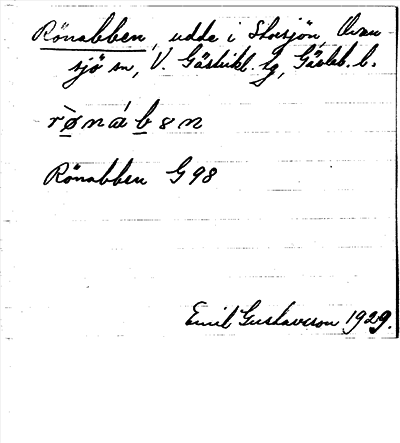 Rönabben, udde i Storsjön, Ovan
sjö sn, V. Gästrikl. tg, Gävleb. l.
rø̀náb̲ən
Rönabben G 98
Emil Gustavsson 1929.